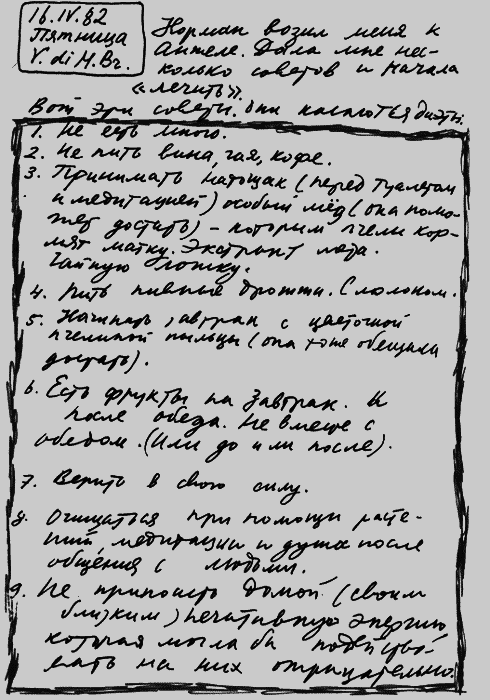 16.IV.82
Пятница
V. di M.Br.
Норман возил меня к
Анжеле. Дала мне нес-
колько советов и начала
«лечить».
Вот эти советы. Они касаются диэты.
1. Не есть много.
2. Не пить вина, чая, кофе.
3. Принимать натощак (перед туалетом
и медитацией) особый мёд (она помо-
жет достать) – которым пчелы кор-
мят матку. Экстракт
Чайную ложку.
4. Пить пивные дрожжи. С молоком.
5. Начинать завтрак с цветочной
пчелиной пыльцы (она тоже обещала
достать).
6. Есть фрукты на завтрак. И
после обеда. Не вместе с
обедом. (Или до или после).
7. Верить в свою силу.
8. Очищаться при помощи расте-
ний медитации и душа после
общения с людьми.
9. Не приносить домой (своим
близким) негативную энергию
которая могла бы подейство-
вать на них отрицательно.